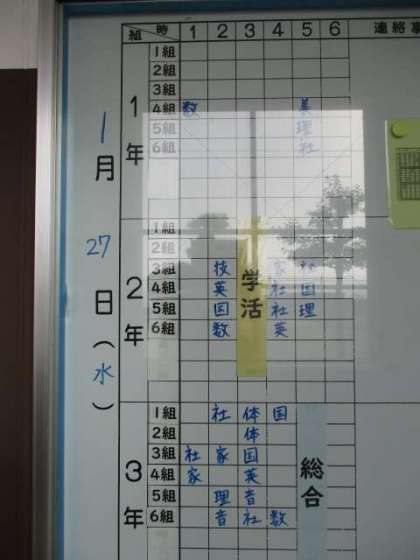 組 時 1 2 3 4 5 6 連絡事
1月27日(水)
1年
1組
2組
3組
4組 数 美
5組 理
6組 社
2年
学活
1組
2組
3組 技 家 社
4組 英 社 国
5組 国 社 理
6組 数 英
3年
総合
1組 社 体 国
2組 体
3組 社 家 国
4組 家 英
5組 理 音
6組 音 社 数